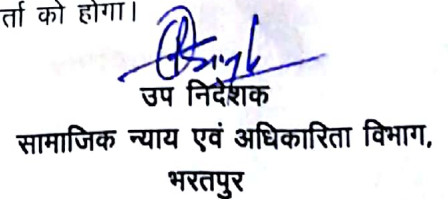 र्ता को होगा।
उप निदेशक
सामाजिक न्याय एवं अधिकारिता विभाग,
भरतपुर